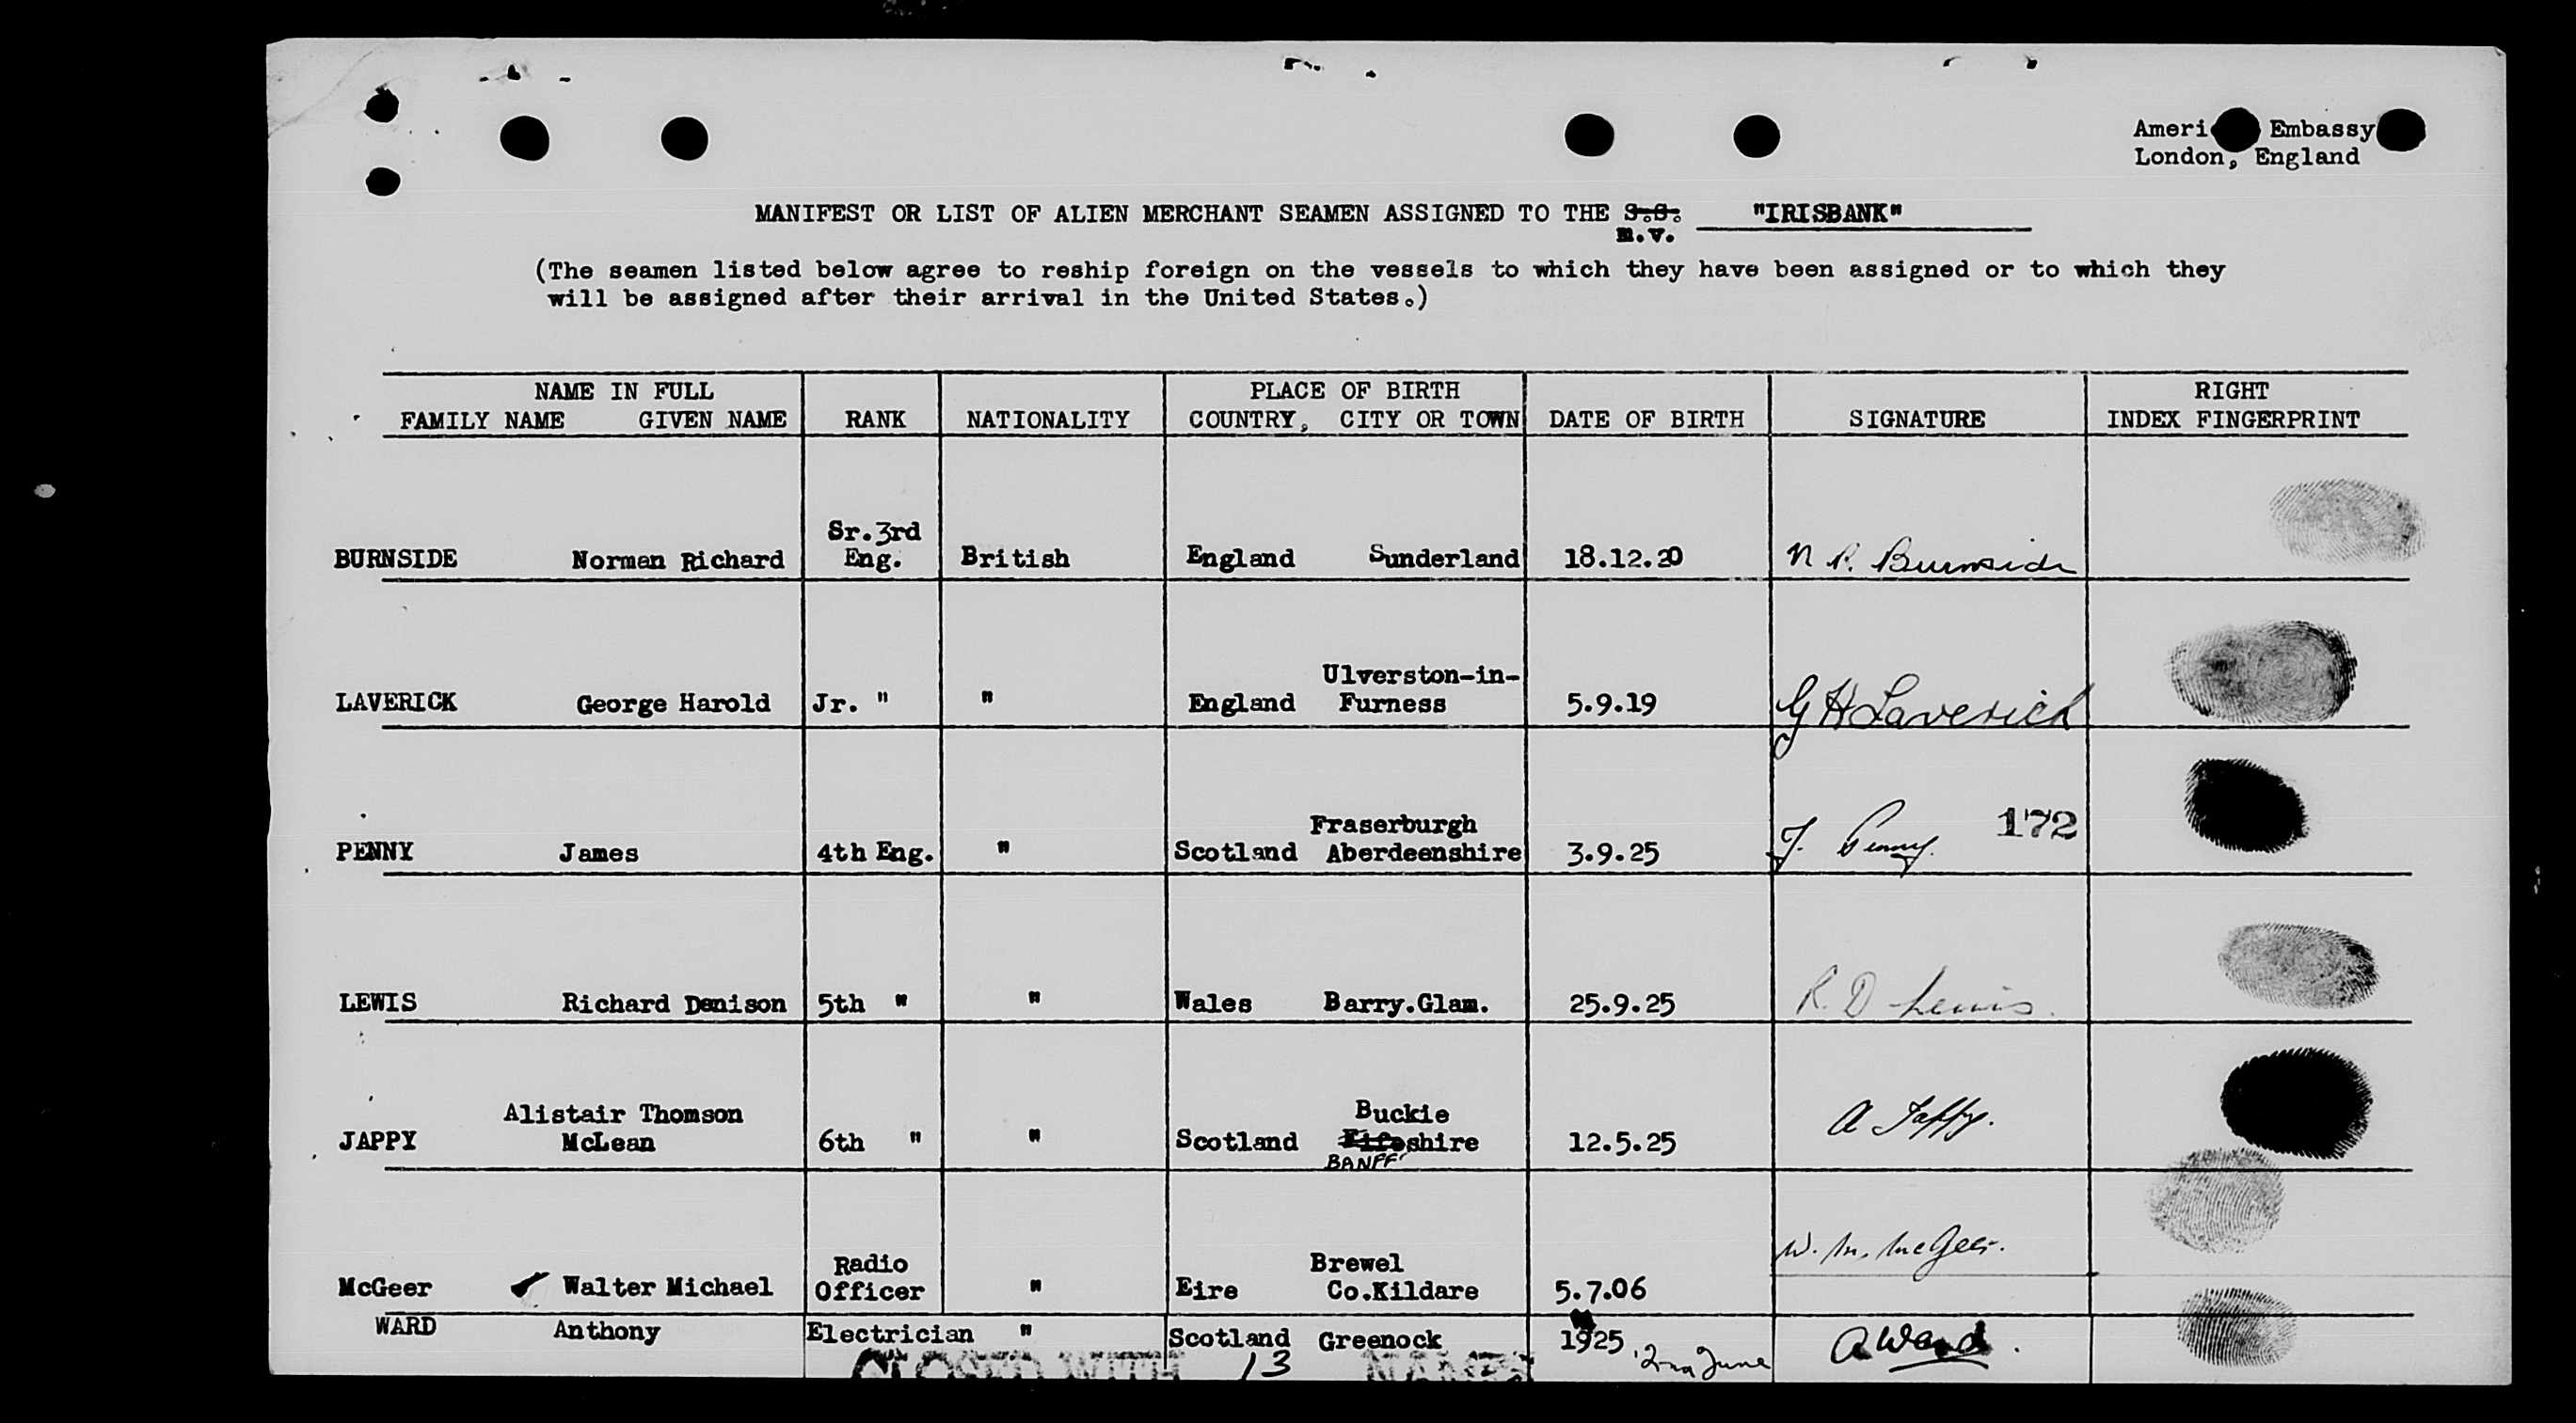 Ameri Embassy
London, England
MANIFEST OR LIST OF ALIEN MERCHANT SEAMEN ASSIGNED TO THE S.S. "IRISBANK"
m.v.
(The seamen listed below agree to reship foreign on the vessels to which they have been assigned or to which they
will be assigned after their arrival in the United States.)
NAME IN FULL PLACE OF BIRTH RIGHT
FAMILY NAME GIVEN NAME RANK NATIONALITY COUNTRY, CITY OR TOWN DATE OF BIRTH SIGNATURE INDEX FINGERPRINT
Sr.3rd
BURNSIDE Norman Richard Eng. British England Sunderland 18.12.20 N R. Burnside
Ulverston-in-
LAVERICK George Harold Jr. " " England Furness 5.9.19 G H Laverick
Fraserburgh 172
PENNY James 4th Eng. " Scotland Aberdeenshire 3.9.25 J. Penny.
LEWIS Richard Denison 5th " " Wales Barry.Glam. 25.9.25 R. D Lewis.
Alistair Thomson Buckie
JAPPY McLean 6th " " Scotland Fifeshire 12.5.25 A Jappy.
BANFF
Radio Brewel W. M. McGeer.
McGeer Walter Michael Officer " Eire Co.Kildare 5.7.06
WARD Anthony Electrician " Scotland Greenock 1925 2nd June A Ward.
CLOSED WITH 13 NAMES